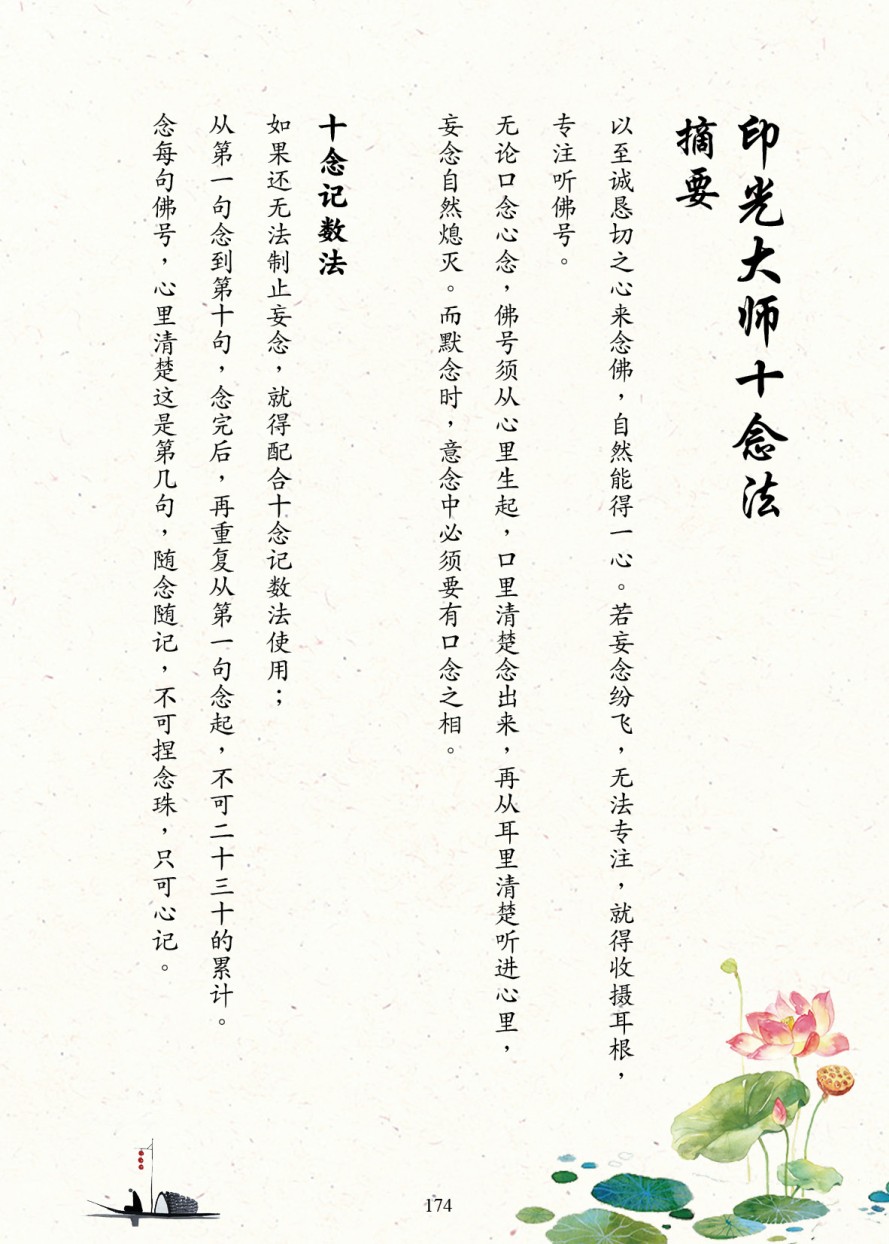 印光大师十念法
摘要
以至诚恳切之心来念佛，自然能得一心。若妄念纷飞，无法专注，就得收摄耳根，
专注听佛号。
无论口念心念，佛号须从心里生起，口里清楚念出来，再从耳里清楚听进心里，
妄念自然熄灭。而默念时，意念中必须要有口念之相。
十念记数法
如果还无法制止妄念，就得配合十念记数法使用；
从第一句念到第十句，念完后，再重复从第一句念起，不可二十三十的累计。
念每句佛号，心里清楚这是第几句，随念随记，不可捏念珠，只可心记。
174